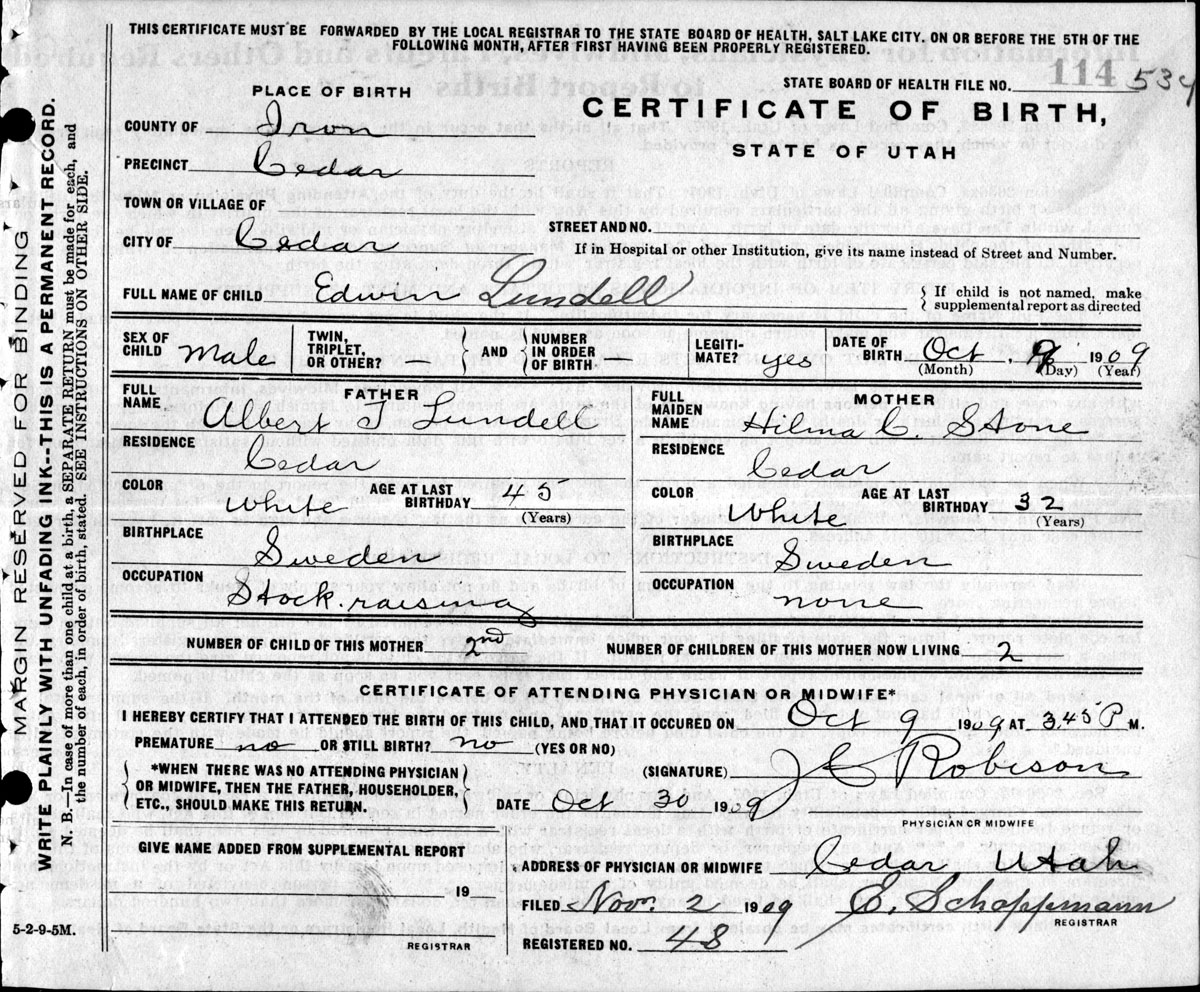 THIS CERTIFICATE MUST BE FORWARDED BY THE LOCAL REGISTRAR TO THE STATE BOARD OF HEALTH, SALT LAKE CITY, ON OR BEFORE THE 5TH OF THE
FOLLOWING MONTH, AFTER FIRST HAVING BEEN PROPERLY REGISTERED.
114
STATE BOARD OF HEALTH FILE NO. 534
PLACE OF BIRTH
CERTIFICATE OF BIRTH,
STATE OF UTAH
COUNTY OF Iron
PRECINCT Cedar
TOWN OR VILLAGE OF
STREET AND NO.
CITY OF Cedar
If in Hospital or other Institution, give its name instead of Street and Number.
FULL NAME OF CHILD Edwin Lundell
If child is not named, make
supplemental report as directed
SEX OF
CHILD Male
TWIN,
TRIPLET,
OR OTHER?
AND
NUMBER
IN ORDER
OF BIRTH.
LEGITI-
MATE? yes
DATE OF
BIRTH Oct 9 1909
(Month) (Day) (Year)
FATHER
FULL
NAME Albert J Lundell
RESIDENCE
Cedar
COLOR
White
AGE AT LAST
BIRTHDAY 45
(Years)
BIRTHPLACE
Sweden
OCCUPATION
Stock-raising
MOTHER
FULL
MAIDEN
NAME Hilma C. Stone
RESIDENCE
Cedar
COLOR
White
AGE AT LAST
BIRTHDAY 32
(Years)
BIRTHPLACE
Sweden
OCCUPATION
none
NUMBER OF CHILD OF THIS MOTHER 2nd NUMBER OF CHILDREN OF THIS MOTHER NOW LIVING 2
CERTIFICATE OF ATTENDING PHYSICIAN OR MIDWIFE*
I HEREBY CERTIFY THAT I ATTENDED THE BIRTH OF THIS CHILD, AND THAT IT OCCURED ON Oct 9 1909 AT 3.45 P M.
PREMATURE no OR STILL BIRTH? no (YES OR NO)
*WHEN THERE WAS NO ATTENDING PHYSICIAN
OR MIDWIFE, THEN THE FATHER, HOUSEHOLDER,
ETC., SHOULD MAKE THIS RETURN.
(SIGNATURE) Robison
DATE Oct 30 1909
PHYSICIAN OR MIDWIFE
GIVE NAME ADDED FROM SUPPLEMENTAL REPORT
19
REGISTRAR
ADDRESS OF PHYSICIAN OR MIDWIFE Cedar Utah
FILED Nov. 2 1909 E. Schoppmann
REGISTRAR
REGISTERED NO. 48
5-2-9-5M.
MARGIN RESERVED FOR BINDING
WRITE PLAINLY WITH UNFADING INK--THIS IS A PERMANENT RECORD.
N. B.—In case of more than one child at a birth, a SEPARATE RETURN must be made for each, and
the number of each, in order of birth, stated. SEE INSTRUCTIONS ON OTHER SIDE.